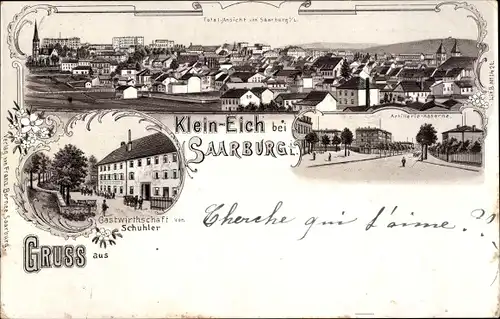 Total-Ansicht von Saarburg i/L
Klein-Eich bei
SAARBURG i/L
Artilleriekaserne
Gastwirthschaft von
Schuhler
GRUSS aus
Cherche qui t'aime..?
Verlag von Franz Bornea, Saarburg